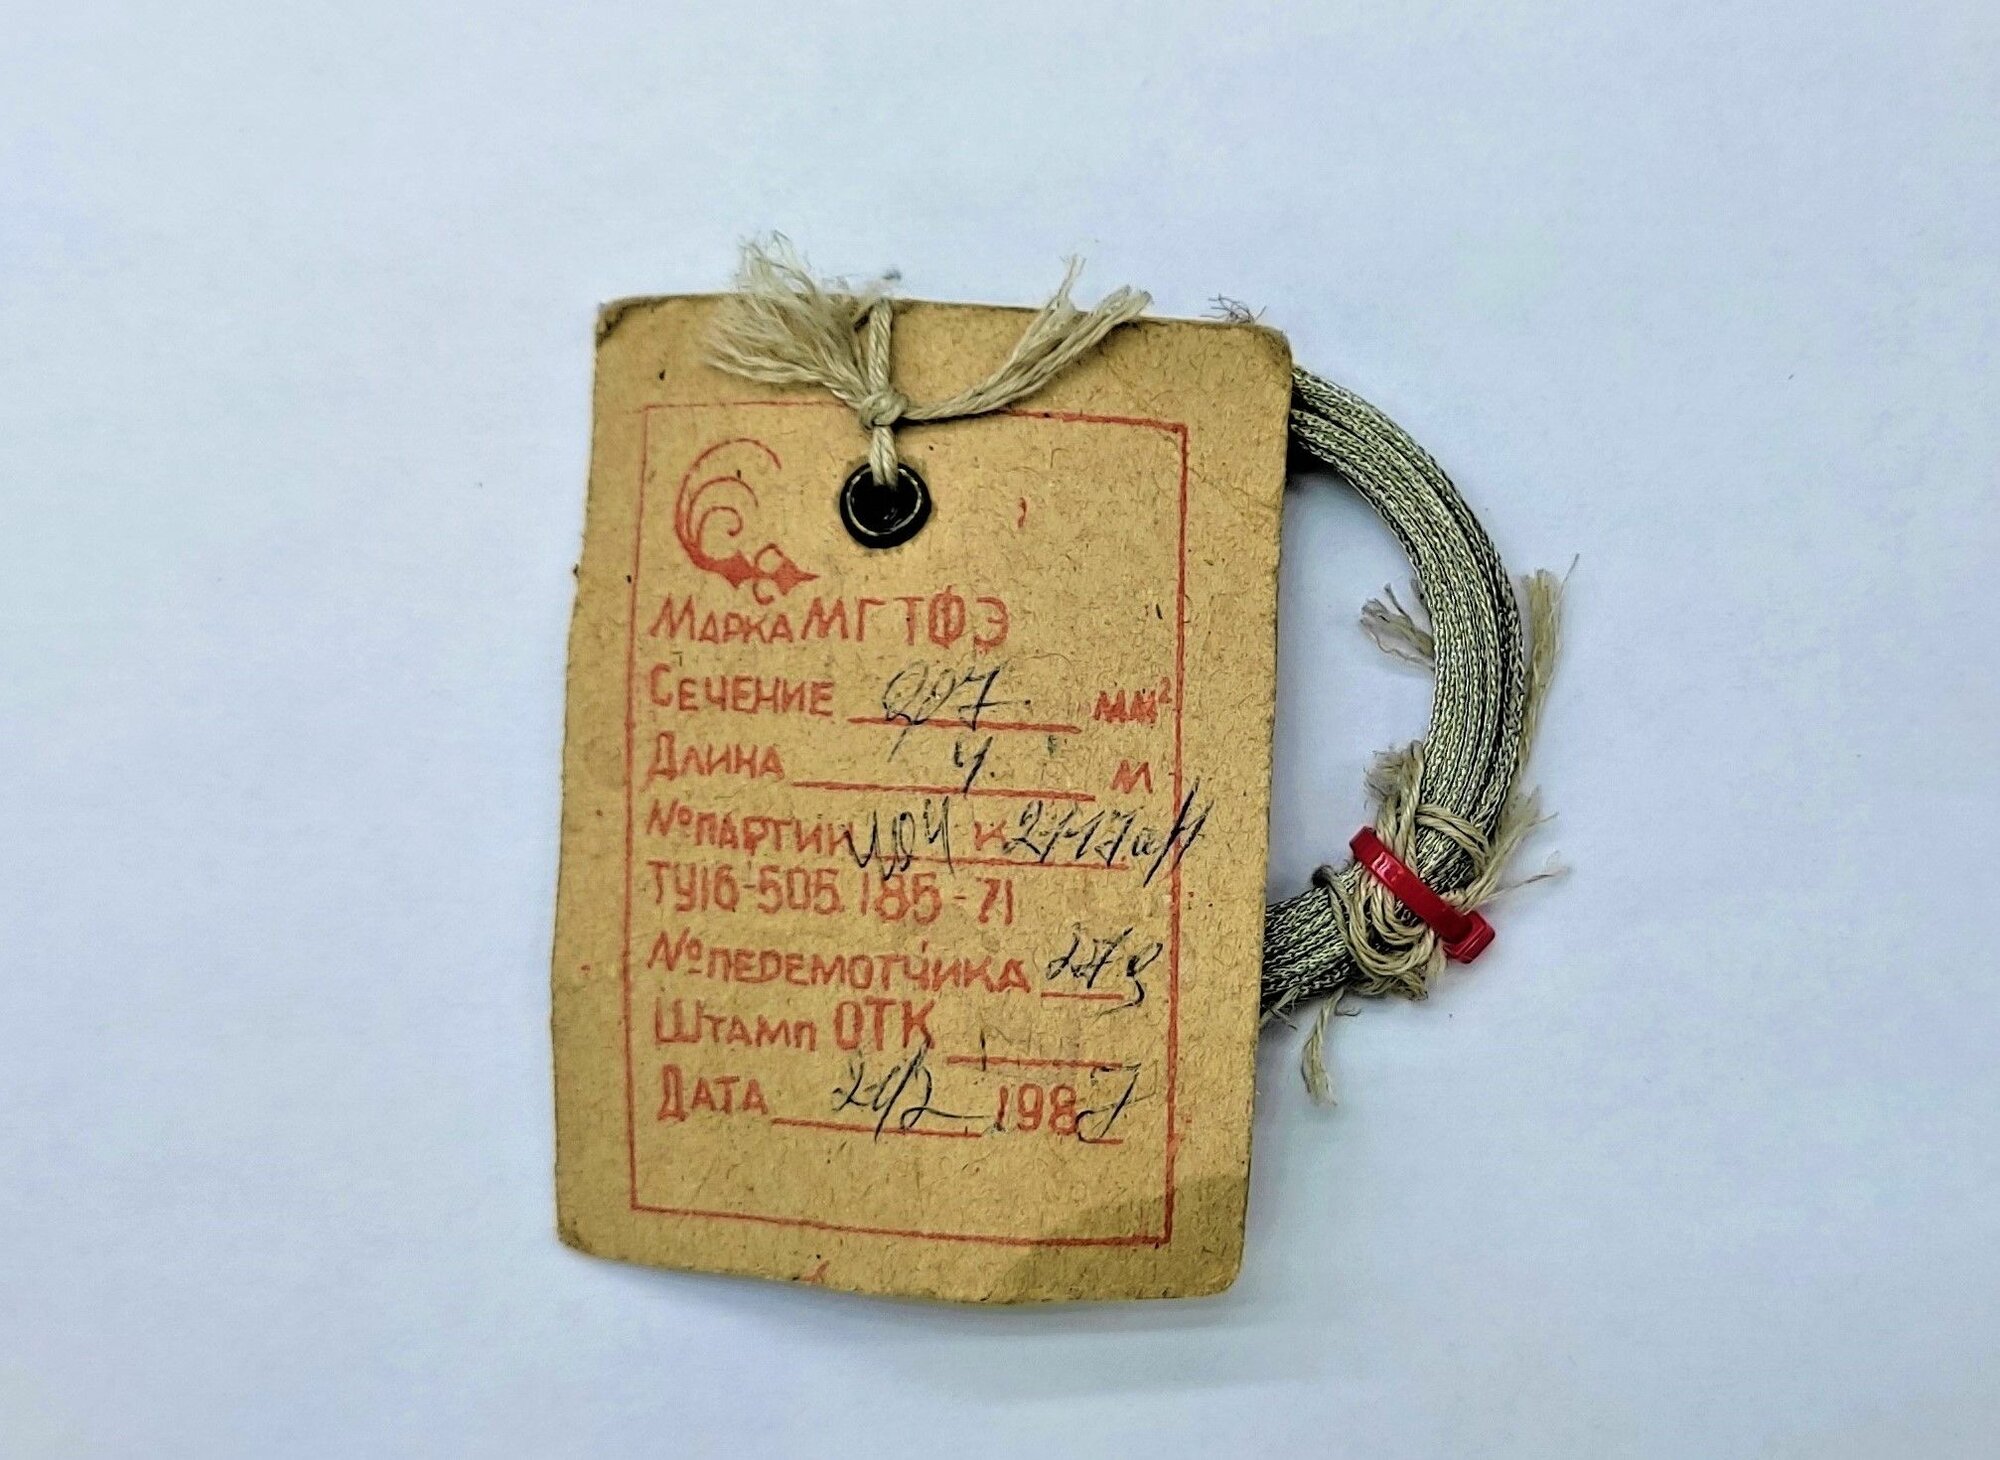 Марка МГТФЭ
Сечение 0,07 мм²
Длина 4 м
№ партии
ТУ16-505.185-71
№ перемотчика
Штамп ОТК
Дата 1987